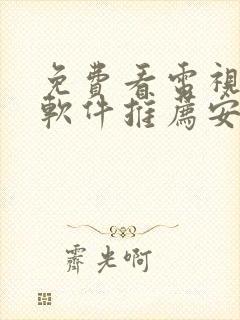 免費看電視
軟件推薦安
霽光啊